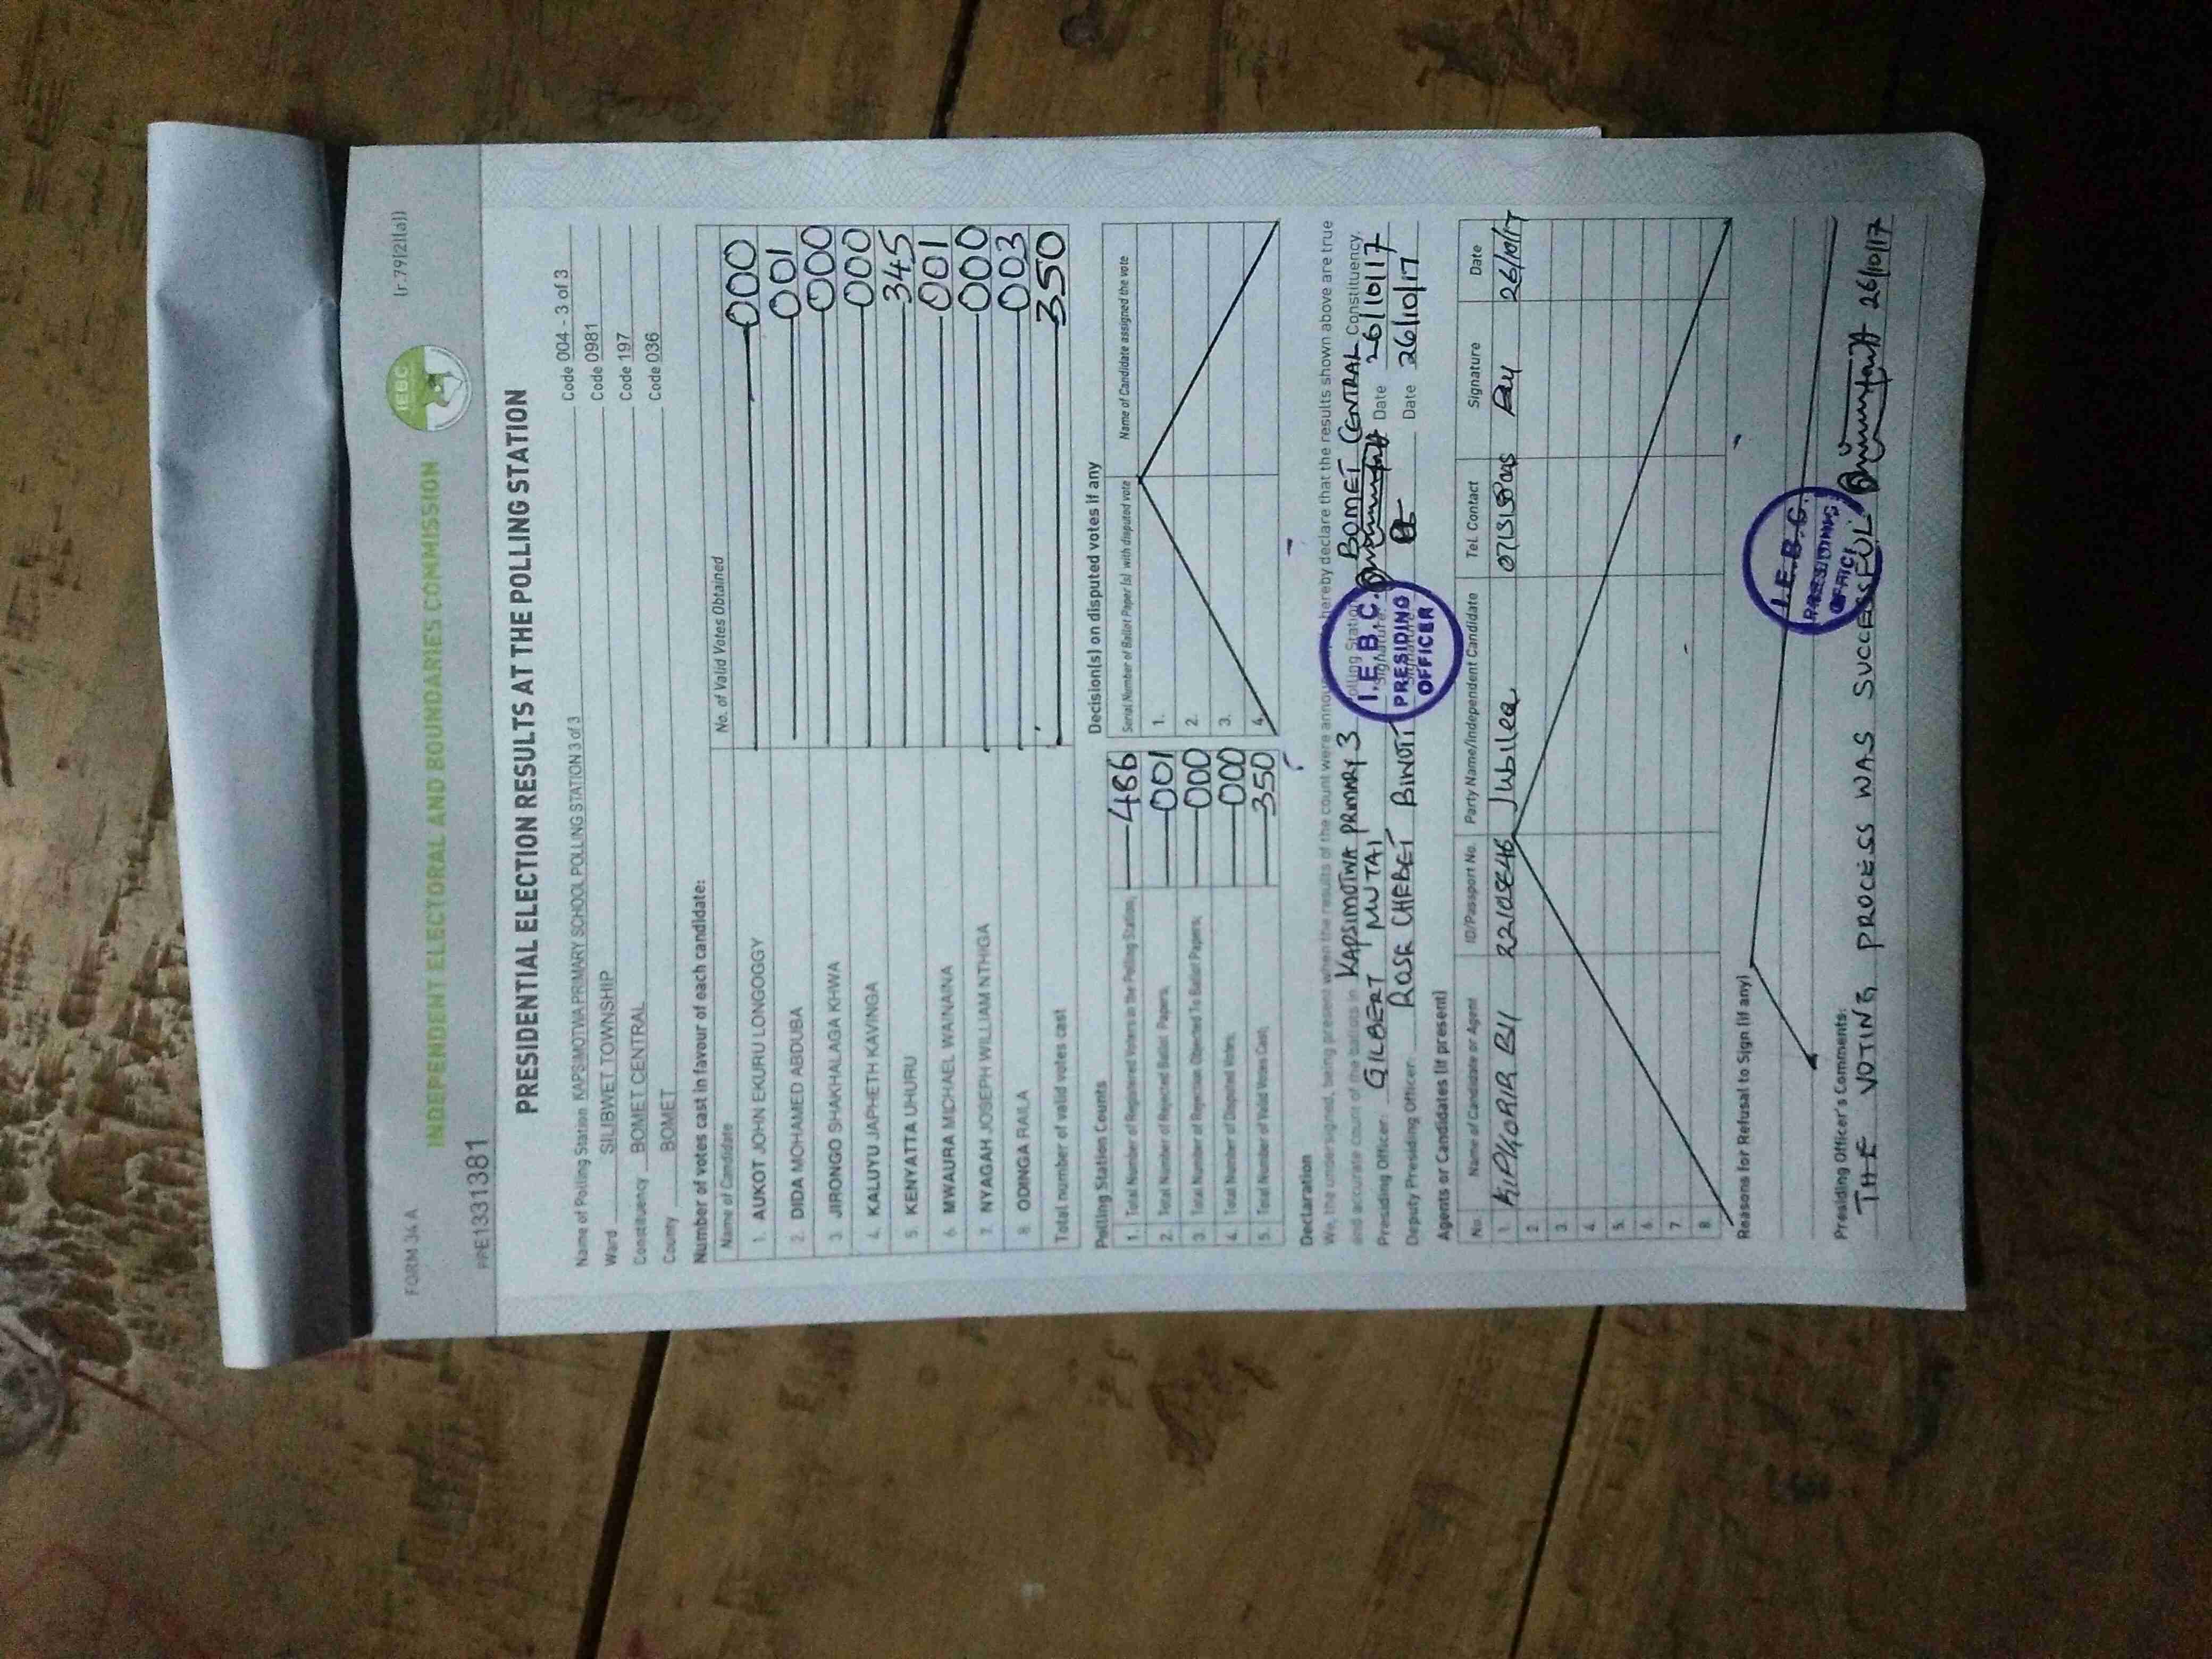 FORM 34 A
(r.79(2)(a))
INDEPENDENT ELECTORAL AND BOUNDARIES COMMISSION
IEBC
PRE1331381
PRESIDENTIAL ELECTION RESULTS AT THE POLLING STATION
Name of Polling Station KAPSIMOTWA PRIMARY SCHOOL POLLING STATION 3 of 3 Code 004 - 3 of 3
Ward SILIBWET TOWNSHIP Code 0981
Constituency BOMET CENTRAL Code 197
County BOMET Code 036
Number of votes cast in favour of each candidate:
Name of Candidate No. of Valid Votes Obtained
1. AUKOT JOHN EKURU LONGOGGY 000
2. DIDA MOHAMED ABDUBA 001
3. JIRONGO SHAKHALAGA KHWA 000
4. KALUYU JAPHETH KAVINGA 000
5. KENYATTA UHURU 345
6. MWAURA MICHAEL WAINAINA 001
7. NYAGAH JOSEPH WILLIAM NTHIGA 000
8. ODINGA RAILA 003
Total number of valid votes cast 350
Polling Station Counts
1. Total Number of Registered Voters in the Polling Station 486
2. Total Number of Rejected Ballot Papers 001
3. Total Number of Rejection Objected To Ballot Papers 000
4. Total Number of Disputed Votes 000
5. Total Number of Valid Votes Cast 350
Decision(s) on disputed votes if any
Serial Number of Ballot Paper (s) with disputed vote Name of Candidate assigned the vote
1.
2.
3.
4.
Declaration
We, the undersigned, being present when the results of the count were announced hereby declare that the results shown above are true
and accurate count of the ballots in KAPSIMOTWA PRIMARY 3 Polling Station BOMET CENTRAL Constituency.
Presiding Officer: GILBERT MUTAI Signature Date 26/10/17
Deputy Presiding Officer: ROSE CHEBET Signature Date 26/10/17
I.E.B.C.
PRESIDING
OFFICER
Agents or Candidates (if present)
No. Name of Candidate or Agent ID/Passport No. Party Name/Independent Candidate Tel. Contact Signature Date
1. Jubilea 26/10/17
2.
3.
4.
5.
6.
7.
8.
Reasons for Refusal to Sign (if any)
I.E.B.C.
PRESIDING
Presiding Officer's Comments:
THE VOTING PROCESS WAS SUCCESSFUL 26/10/17